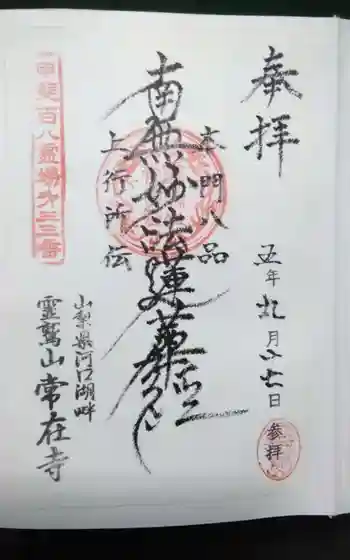 奉拝
五年九月廿七日
参拝
本門八品
南無妙法蓮華経
上行所伝
甲斐百八霊場第二三番
山梨県河口湖畔
霊鷲山常在寺